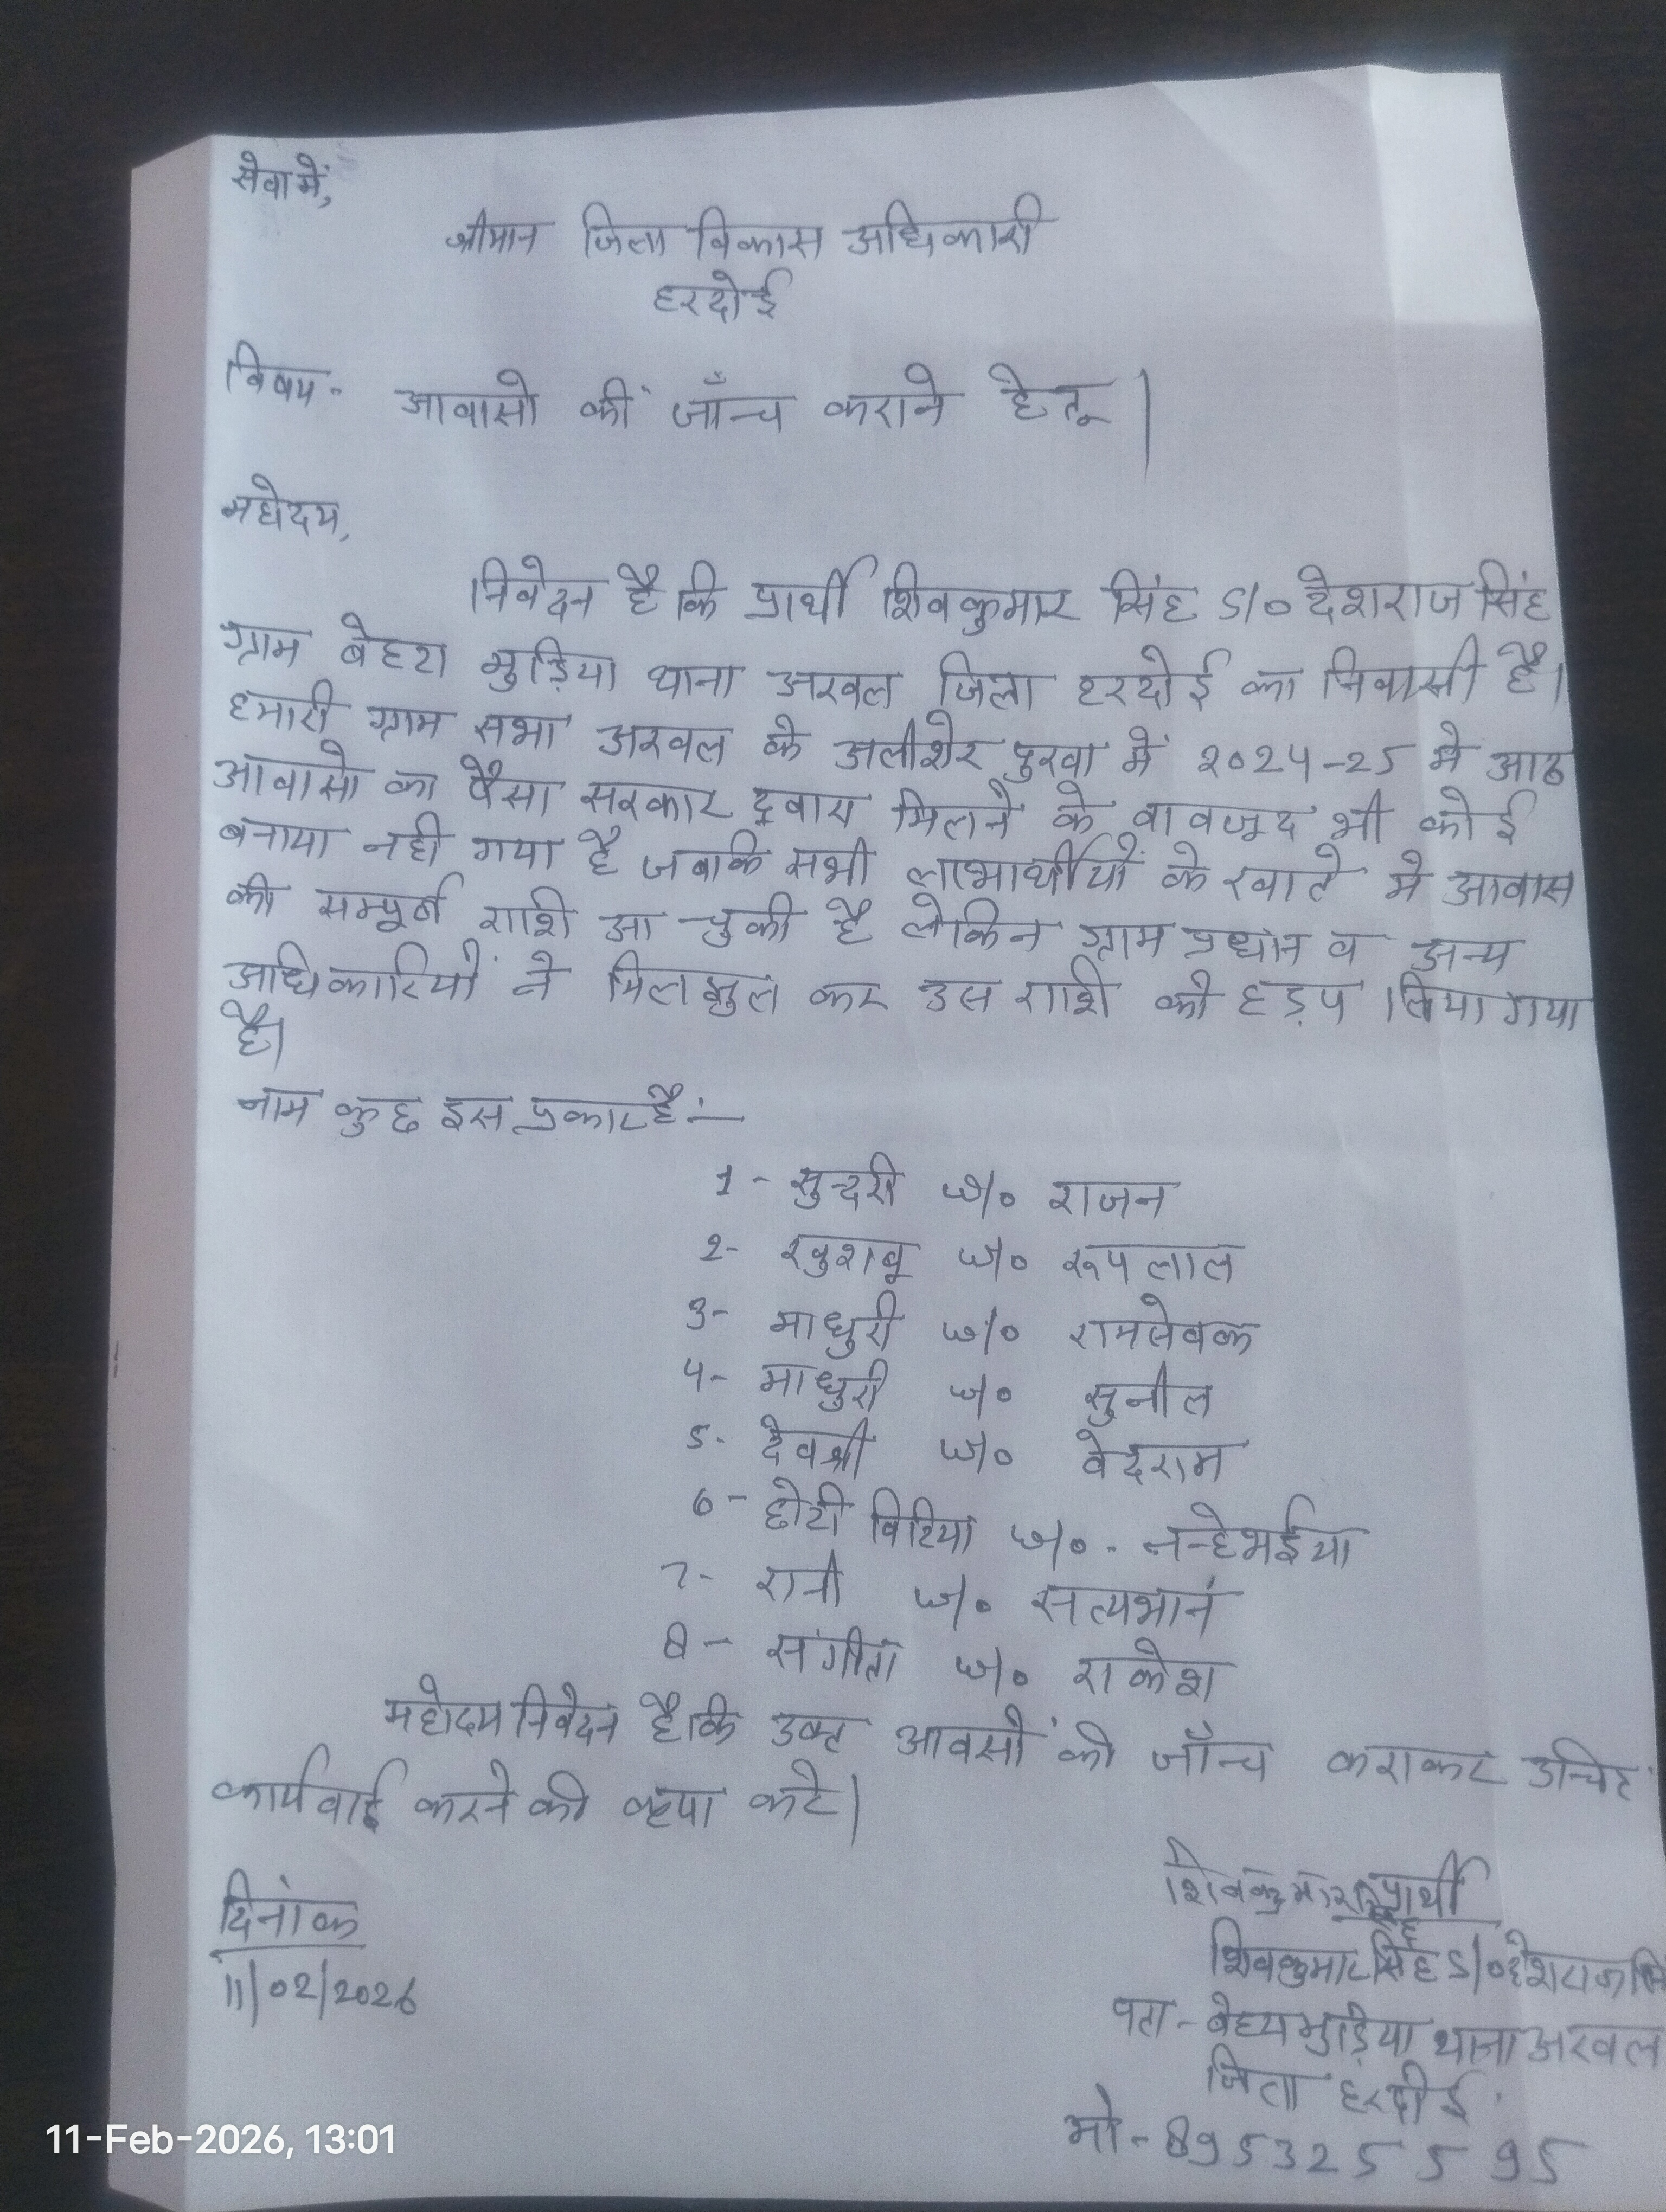 सेवा में,
श्रीमान जिला विकास अधिकारी
हरदोई
विषय- आवासो की जाँच कराने हेतू।
महोदय,
निवेदन है कि प्रार्थी शिवकुमार सिंह S/o देशराज सिंह
ग्राम बेहटा मुड़िया थाना अरवल जिला हरदोई का निवासी है।
हमारी ग्राम सभा अरवल के अलीशेर पुरवा में 2024-25 मे आठ
आवासो का पैसा सरकार द्वारा मिलने के वावजूद भी कोई
बनाया नही गया है जबकि सभी लाभार्थीयों के खाते मे आवास
की सम्पूर्ण राशि आ चुकी है लेकिन ग्राम प्रधान व अन्य
अधिकारियों ने मिलझुल कर उस राशि को हड़प लिया गया
है।
नाम कुछ इस प्रकार है:-
1- सुन्दरी w/o राजन
2- खुशबू w/o रूपलाल
3- माधुरी w/o रामसेवक
4- माधुरी w/o सुनील
5- देवश्री w/o वेदराम
6- छोटी विटिया w/o. नन्हेभईया
7- रानी w/o सत्यभान
8- संगीता w/o राकेश
महोदय निवेदन है कि उक्त आवसों की जाँच कराकर उचित
कार्यवाई करने की कृपा करे।
प्रार्थी
शिवकुमार सिंह
दिनांक
11/02/2026
शिवकुमार सिंह S/o देशराज सिं
पता- बेहटा मुड़िया थाना अरवल
जिला हरदोई
मो- 8953255595
11-Feb-2026, 13:01